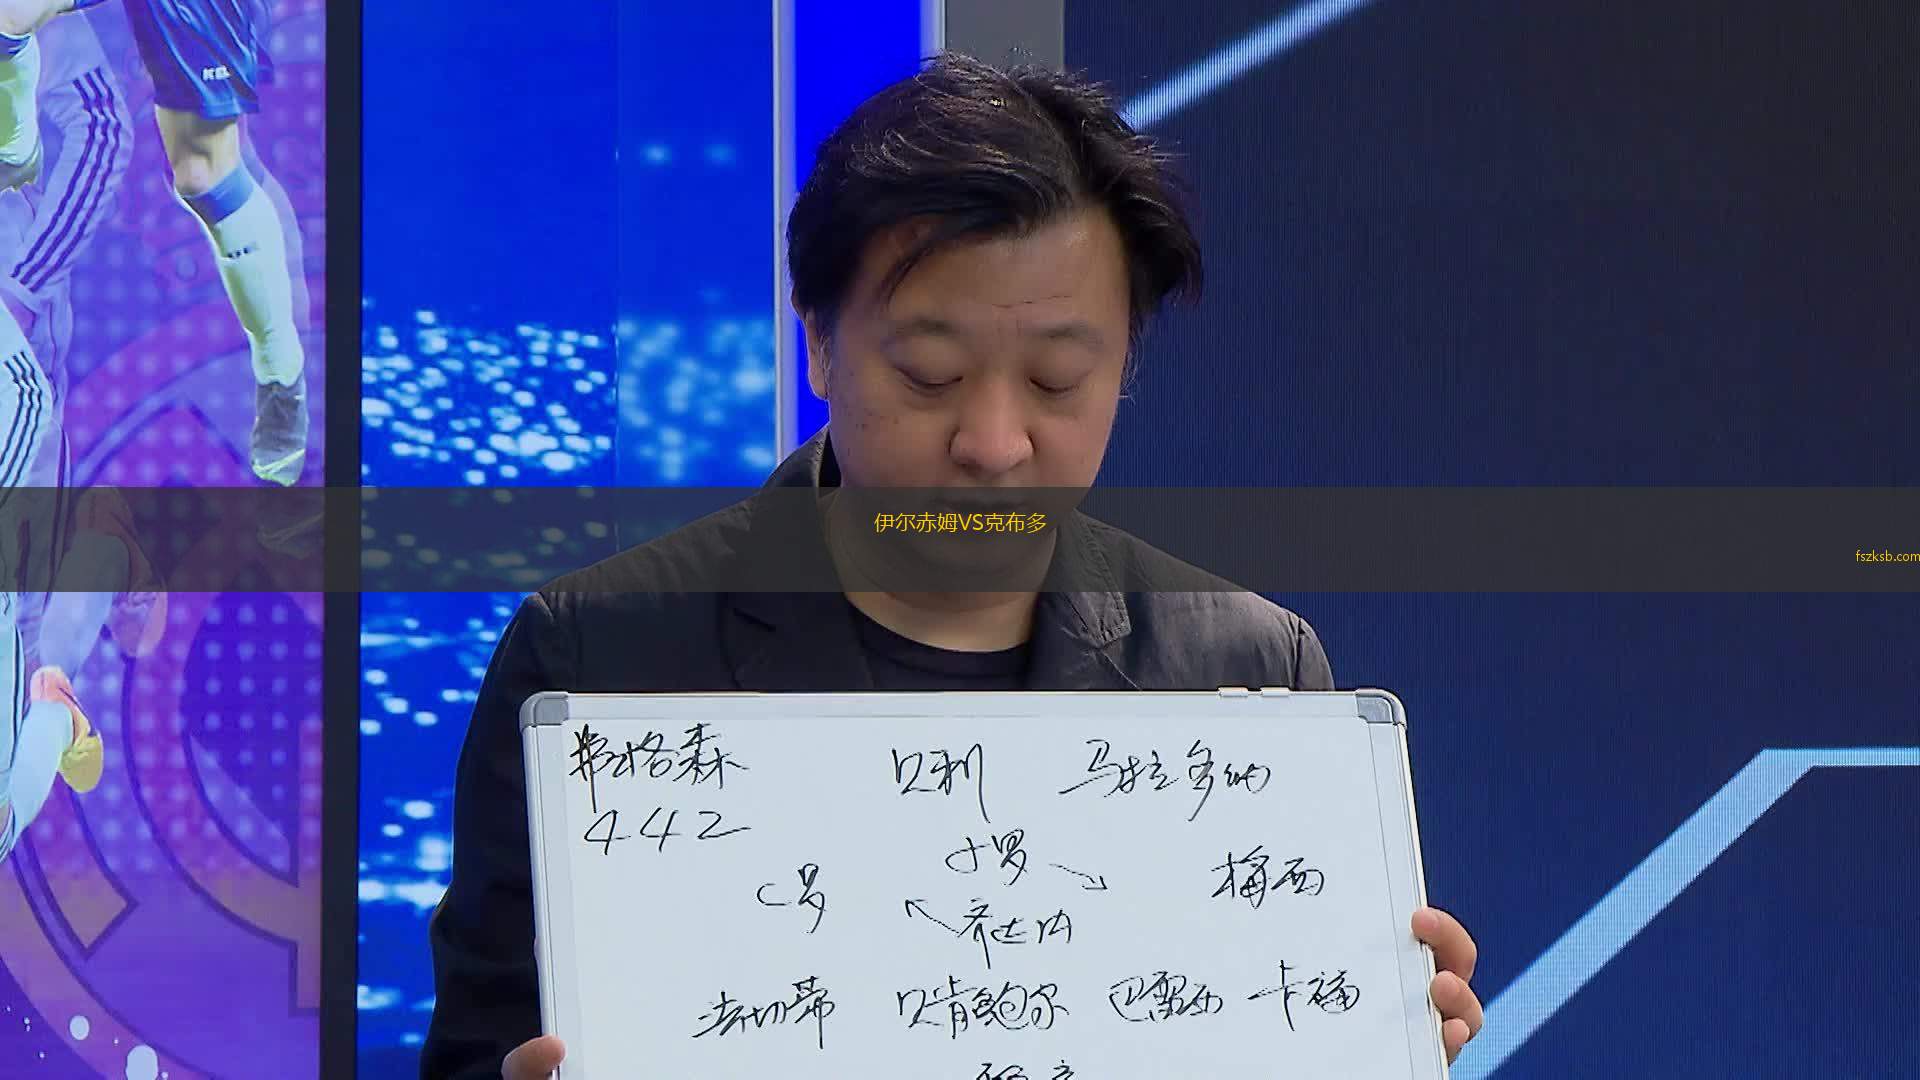 KEL
伊尔赤姆VS克布多
fszksb.com
弗格森 贝利 马拉多纳
442
小罗
C罗 梅西
齐达内
法切蒂 贝肯鲍尔 巴雷西 卡福